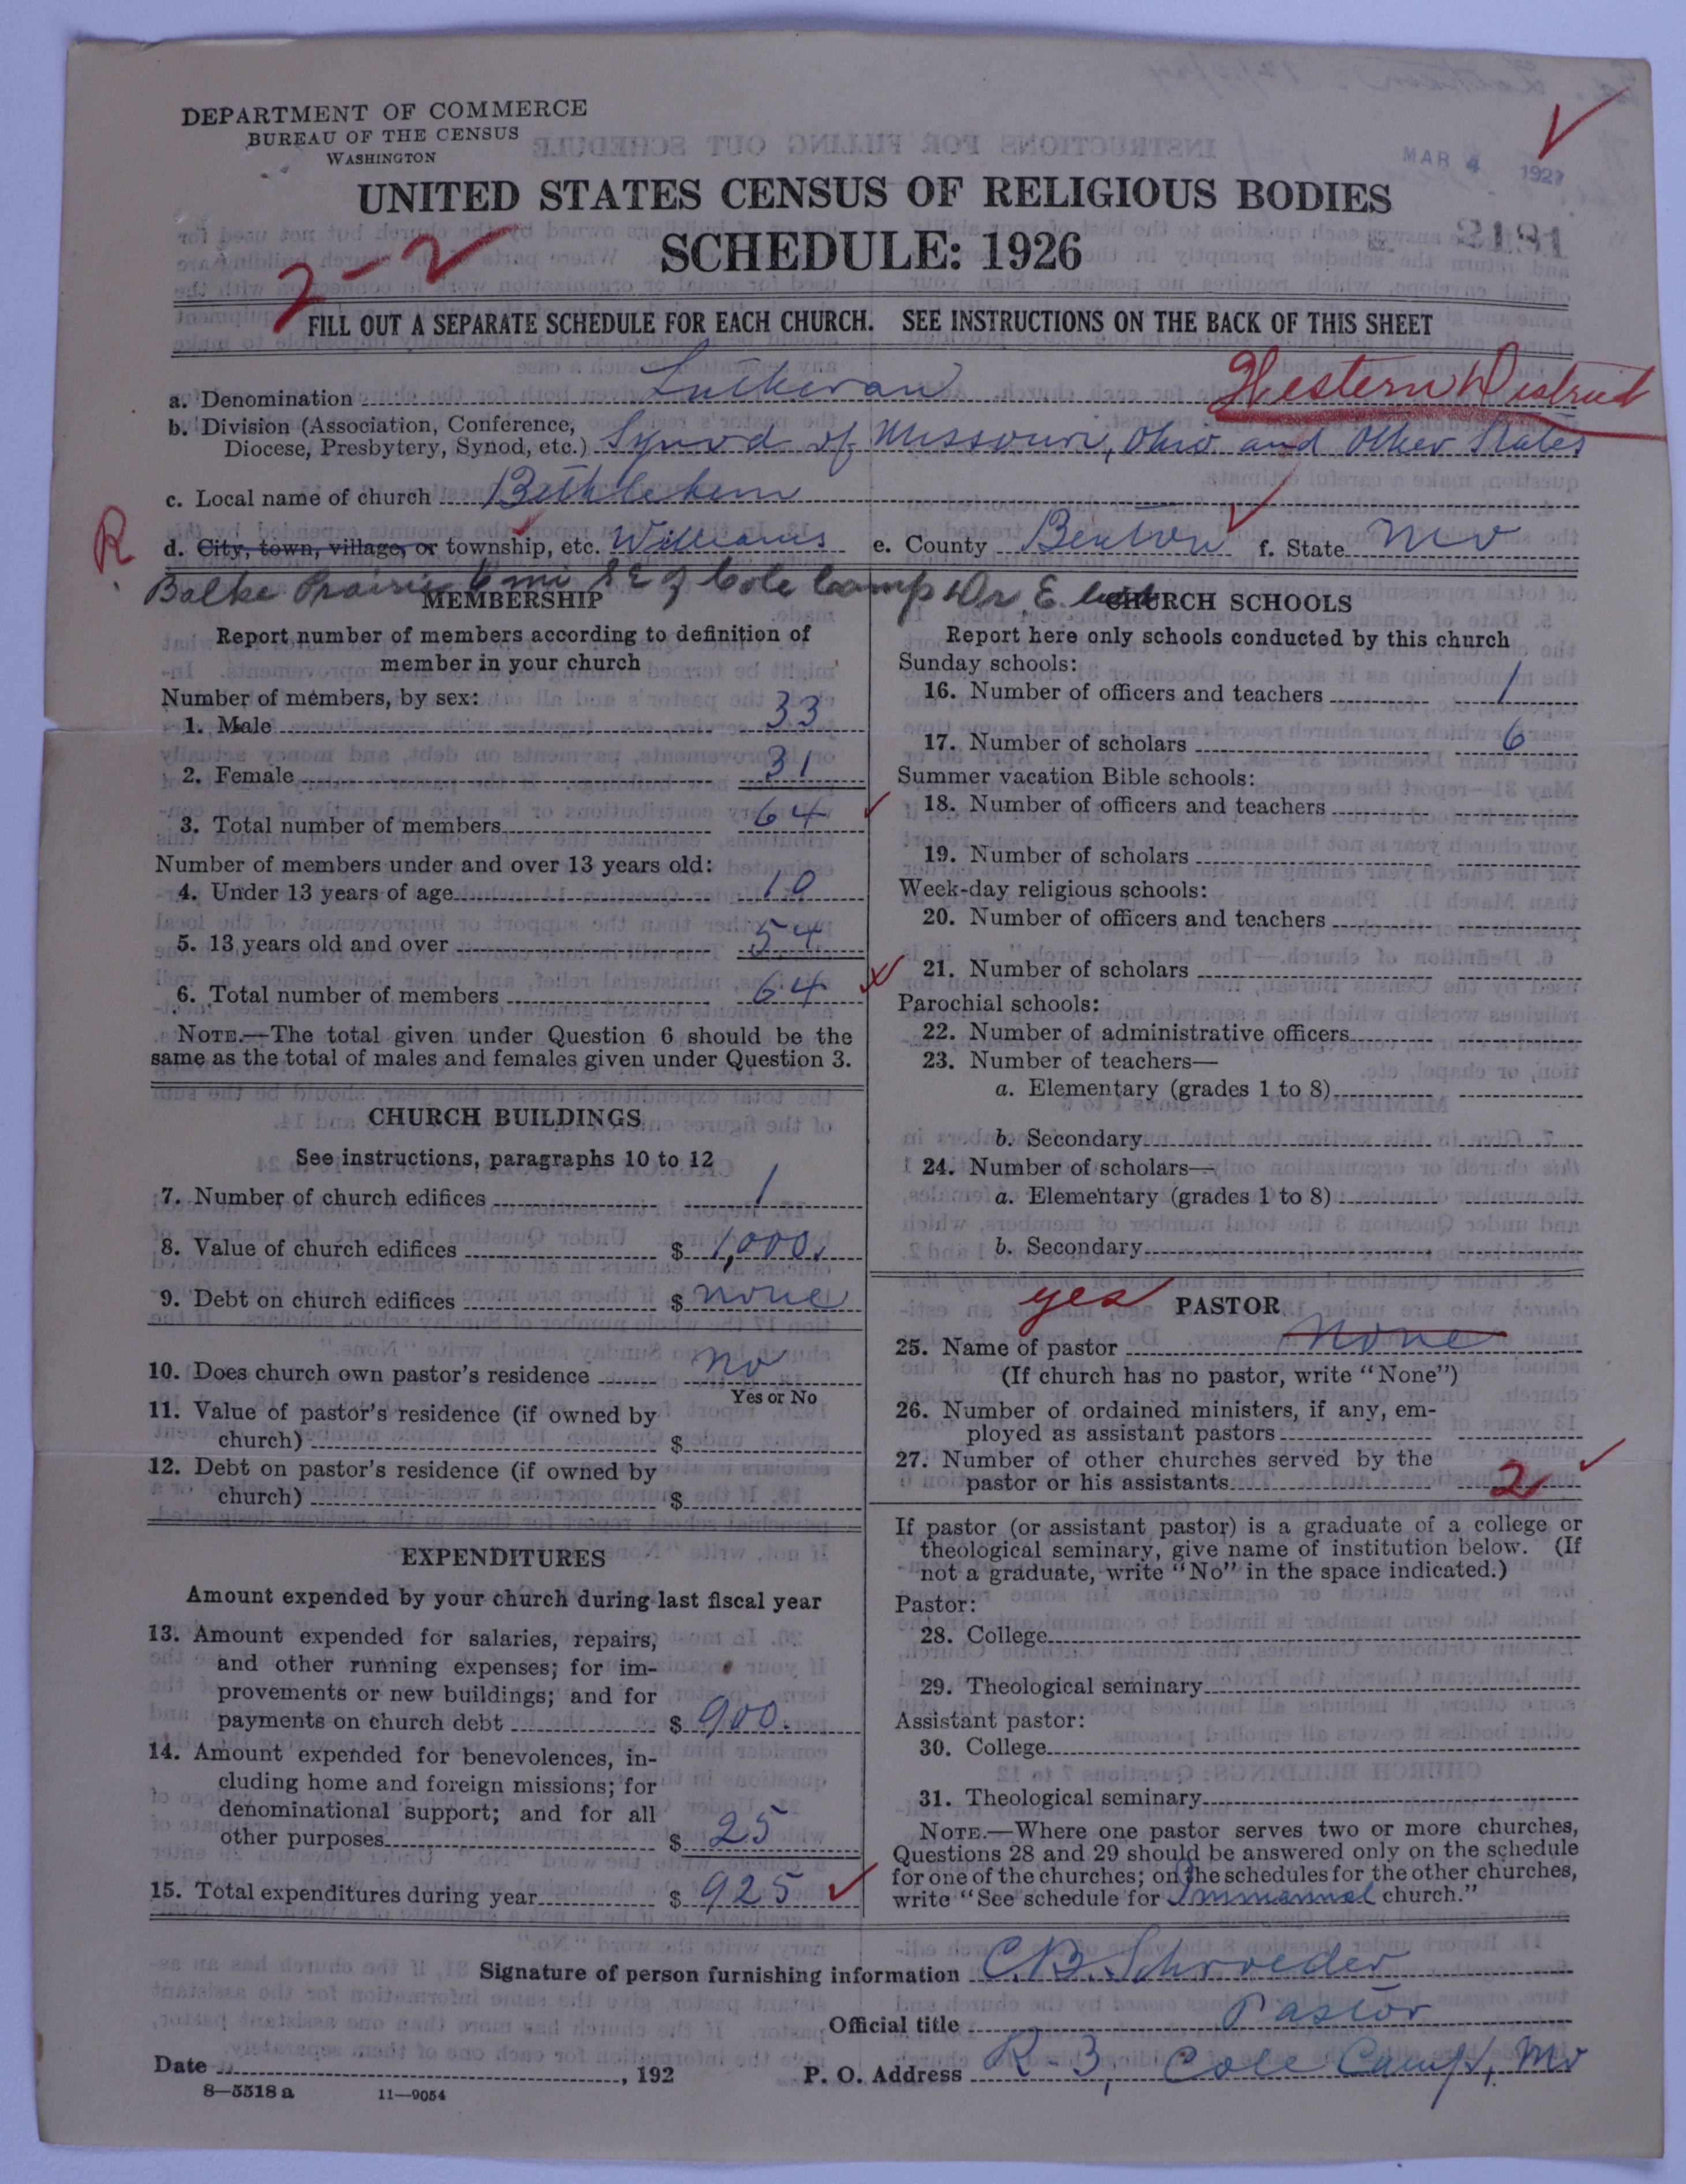 DEPARTMENT OF COMMERCE
BUREAU OF THE CENSUS
WASHINGTON
MAR 4 1927
UNITED STATES CENSUS OF RELIGIOUS BODIES
SCHEDULE: 1926
2191
2-2
FILL OUT A SEPARATE SCHEDULE FOR EACH CHURCH. SEE INSTRUCTIONS ON THE BACK OF THIS SHEET
a. Denomination Lutheran Western District
b. Division (Association, Conference,
Diocese, Presbytery, Synod, etc.) Synod of Missouri, Ohio and Other States
c. Local name of church Bethlehem
R
d. City, town, village, or township, etc. Williams e. County Benton f. State Mo
Bolke Prairie 6 mi S E of Cole Camp
MEMBERSHIP
Report number of members according to definition of
member in your church
Number of members, by sex:
1. Male 33
2. Female 31
3. Total number of members 64
Number of members under and over 13 years old:
4. Under 13 years of age 10
5. 13 years old and over 54
6. Total number of members 64
NOTE.—The total given under Question 6 should be the
same as the total of males and females given under Question 3.
CHURCH BUILDINGS
See instructions, paragraphs 10 to 12
7. Number of church edifices 1
8. Value of church edifices $ 1,000.
9. Debt on church edifices $ none
10. Does church own pastor's residence no
Yes or No
11. Value of pastor's residence (if owned by
church) $
12. Debt on pastor's residence (if owned by
church) $
EXPENDITURES
Amount expended by your church during last fiscal year
13. Amount expended for salaries, repairs,
and other running expenses; for im-
provements or new buildings; and for
payments on church debt $ 900.
14. Amount expended for benevolences, in-
cluding home and foreign missions; for
denominational support; and for all
other purposes $ 25
15. Total expenditures during year $ 925
CHURCH SCHOOLS
Report here only schools conducted by this church
Sunday schools:
16. Number of officers and teachers 1
17. Number of scholars 6
Summer vacation Bible schools:
18. Number of officers and teachers
19. Number of scholars
Week-day religious schools:
20. Number of officers and teachers
21. Number of scholars
Parochial schools:
22. Number of administrative officers
23. Number of teachers—
a. Elementary (grades 1 to 8)
b. Secondary
24. Number of scholars—
a. Elementary (grades 1 to 8)
b. Secondary
yes PASTOR
25. Name of pastor None
(If church has no pastor, write "None")
26. Number of ordained ministers, if any, em-
ployed as assistant pastors
27. Number of other churches served by the
pastor or his assistants 2
If pastor (or assistant pastor) is a graduate of a college or
theological seminary, give name of institution below. (If
not a graduate, write "No" in the space indicated.)
Pastor:
28. College
29. Theological seminary
Assistant pastor:
30. College
31. Theological seminary
NOTE.—Where one pastor serves two or more churches,
Questions 28 and 29 should be answered only on the schedule
for one of the churches; on the schedules for the other churches,
write "See schedule for Immanuel church."
Signature of person furnishing information C.B. Schroeder
Official title Pastor
Date , 192 P. O. Address R-3, Cole Camp, Mo
8—5518 a 11—9054